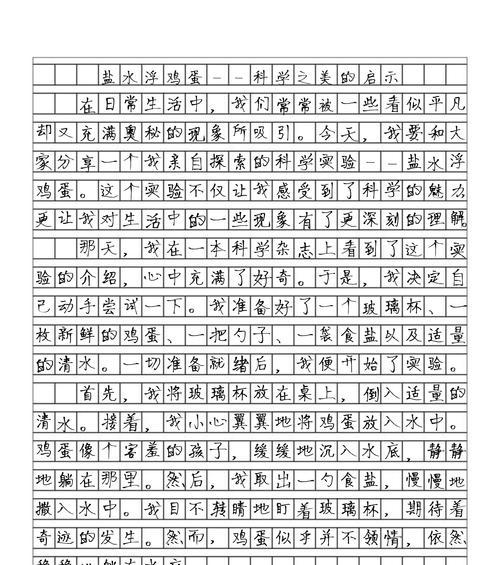 盐水浮鸡蛋--科学之美的启示
在日常生活中，我们常常被一些看似平凡
却又充满奥秘的现象所吸引。今天，我要和大
家分享一个我亲自探索的科学实验--盐水浮
鸡蛋。这个实验不仅让我感受到了科学的魅力
更让我对生活中的一些现象有了更深刻的理解
那天，我在一本科学杂志上看到了这个实
验的介绍，心中充满了好奇。于是，我决定自
己动手尝试一下。我准备好了一个玻璃杯、一
枚新鲜的鸡蛋、一把勺子、一袋食盐以及适量
的清水。一切准备就绪后，我便开始了实验。
首先，我将玻璃杯放在桌上，倒入适量的
清水。接着，我小心翼翼地将鸡蛋放入水中。
鸡蛋像个害羞的孩子，缓缓地沉入水底，静静
地躺在那里。然后，我取出一勺食盐，慢慢地
撒入水中。我目不转睛地盯着玻璃杯，期待着
奇迹的发生。然而，鸡蛋似乎并不领情，依然